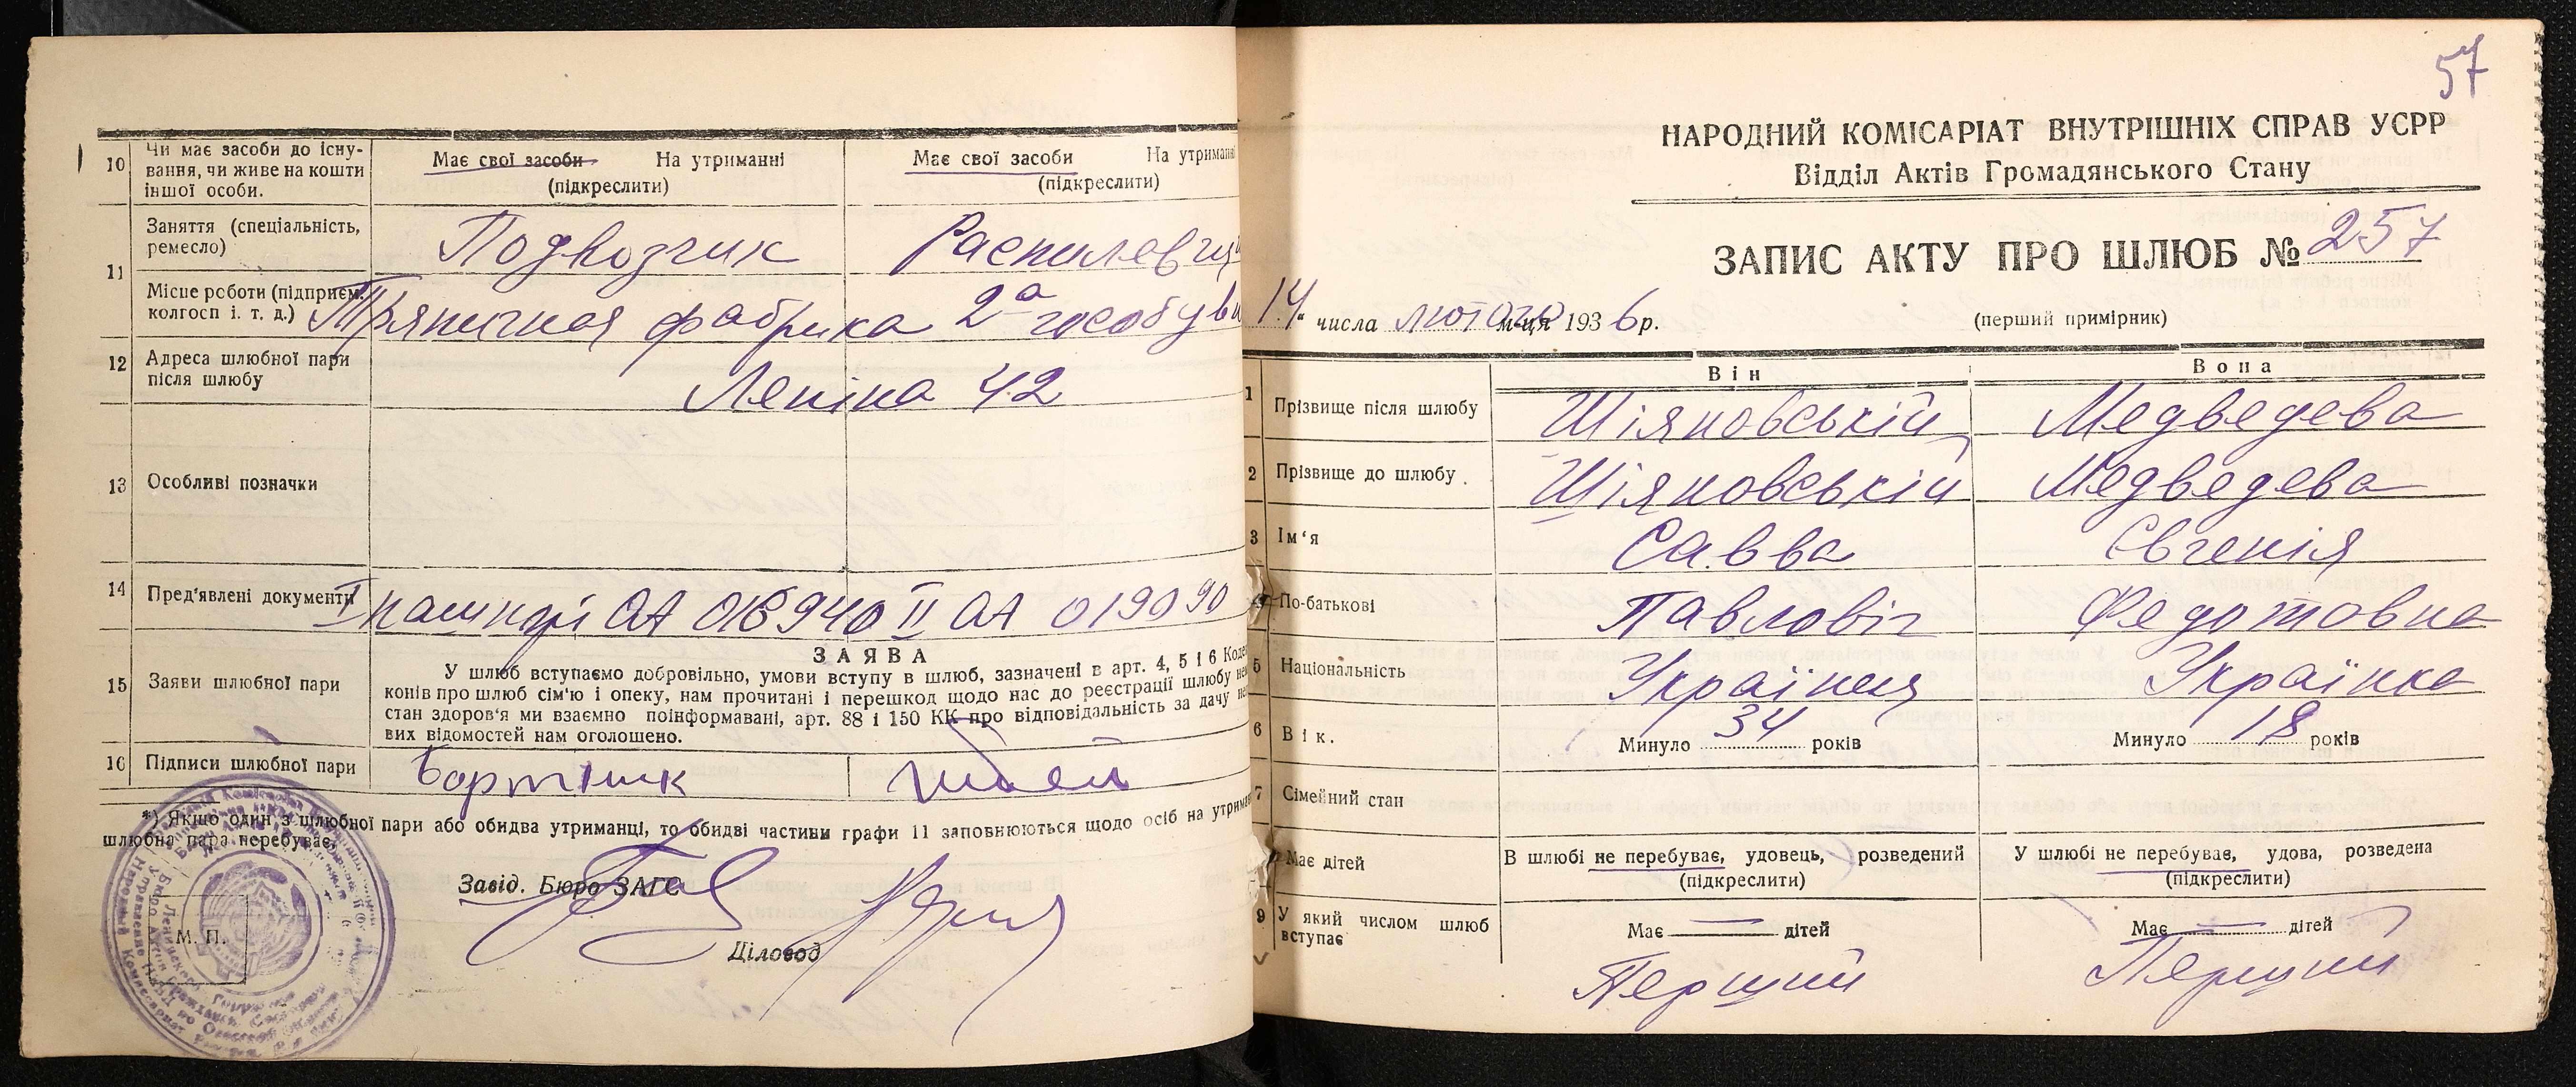 10 Чи має засоби до існу-
вання, чи живе на кошти
іншої особи.
Має свої засоби На утриманні
(підкреслити)
Має свої засоби На утриманні
(підкреслити)
11 Заняття (спеціальність,
ремесло)
Подвозчик
Місце роботи (підприєм.
колгосп і. т. д.)
Тряпичная фабрика 2а
12 Адреса шлюбної пари
після шлюбу
Леніна 42
13 Особливі позначки
14 Пред'явлені документи
I II ОА 019090
15 Заяви шлюбної пари
ЗАЯВА
У шлюб вступаємо добровільно, умови вступу в шлюб, зазначені в арт. 4, 5 і 6 Коде
конів про шлюб сім'ю і опеку, нам прочитані і перешкод щодо нас до реєстрації шлюбу
стан здоров'я ми взаємно поінформавані, арт. 88 і 150 КК про відповідальність за дачу не
вих відомостей нам оголошено.
16 Підписи шлюбної пари
Бортнік
*) Якщо один з шлюбної пари або обидва утриманці, то обидві частини графи 11 заповнюються щодо осіб на утриман
шлюбна пара перебуває.
Завід. Бюро ЗАГС
Діловод
М. П.
57
НАРОДНИЙ КОМІСАРІАТ ВНУТРІШНІХ СПРАВ УСРР
Відділ Актів Громадянського Стану
ЗАПИС АКТУ ПРО ШЛЮБ № 257
14 числа лютого м-ця 1936 р.
(перший примірник)
Він Вона
1 Прізвище після шлюбу Шіяновській Медведева
2 Прізвище до шлюбу Шіяновській Медведева
3 Ім'я Савва Євгенія
4 По-батькові Павловіч Федотовна
5 Національність Українец Українка
6 Вік. Минуло 34 років Минуло 18 років
7 Сімейний стан
В шлюбі не перебуває, удовець, розведений
(підкреслити)
У шлюбі не перебуває, удова, розведена
(підкреслити)
Має дітей
Має дітей
Має дітей
9 У який числом шлюб
вступає
Перший Перший